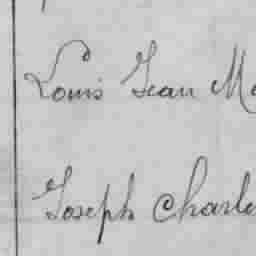 Louis Jean
Joseph Charle